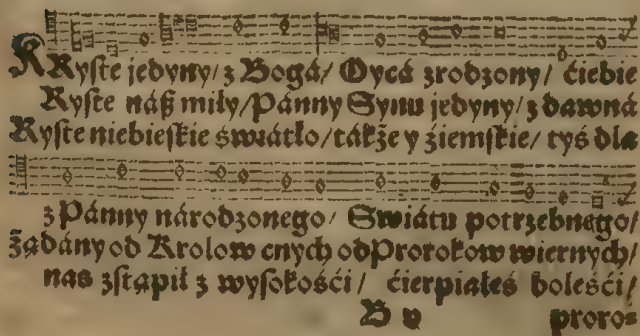 KRyste jedyny/ z Bogá/ Oycá zrodzony/ ćiebie
Ryste náß miły/ Pánny Synu jedyny/ z dawná
Ryste niebieskie światło/ tákże y źiemskie/ tyś dla
z Pánny národzonego/ Swiátu potrzebnego/
żądány od Krolow cnych od Prorokow wiernych/
nas zstąpił z wysokośći/ ćierpiałeś boleśći/
B v proro=